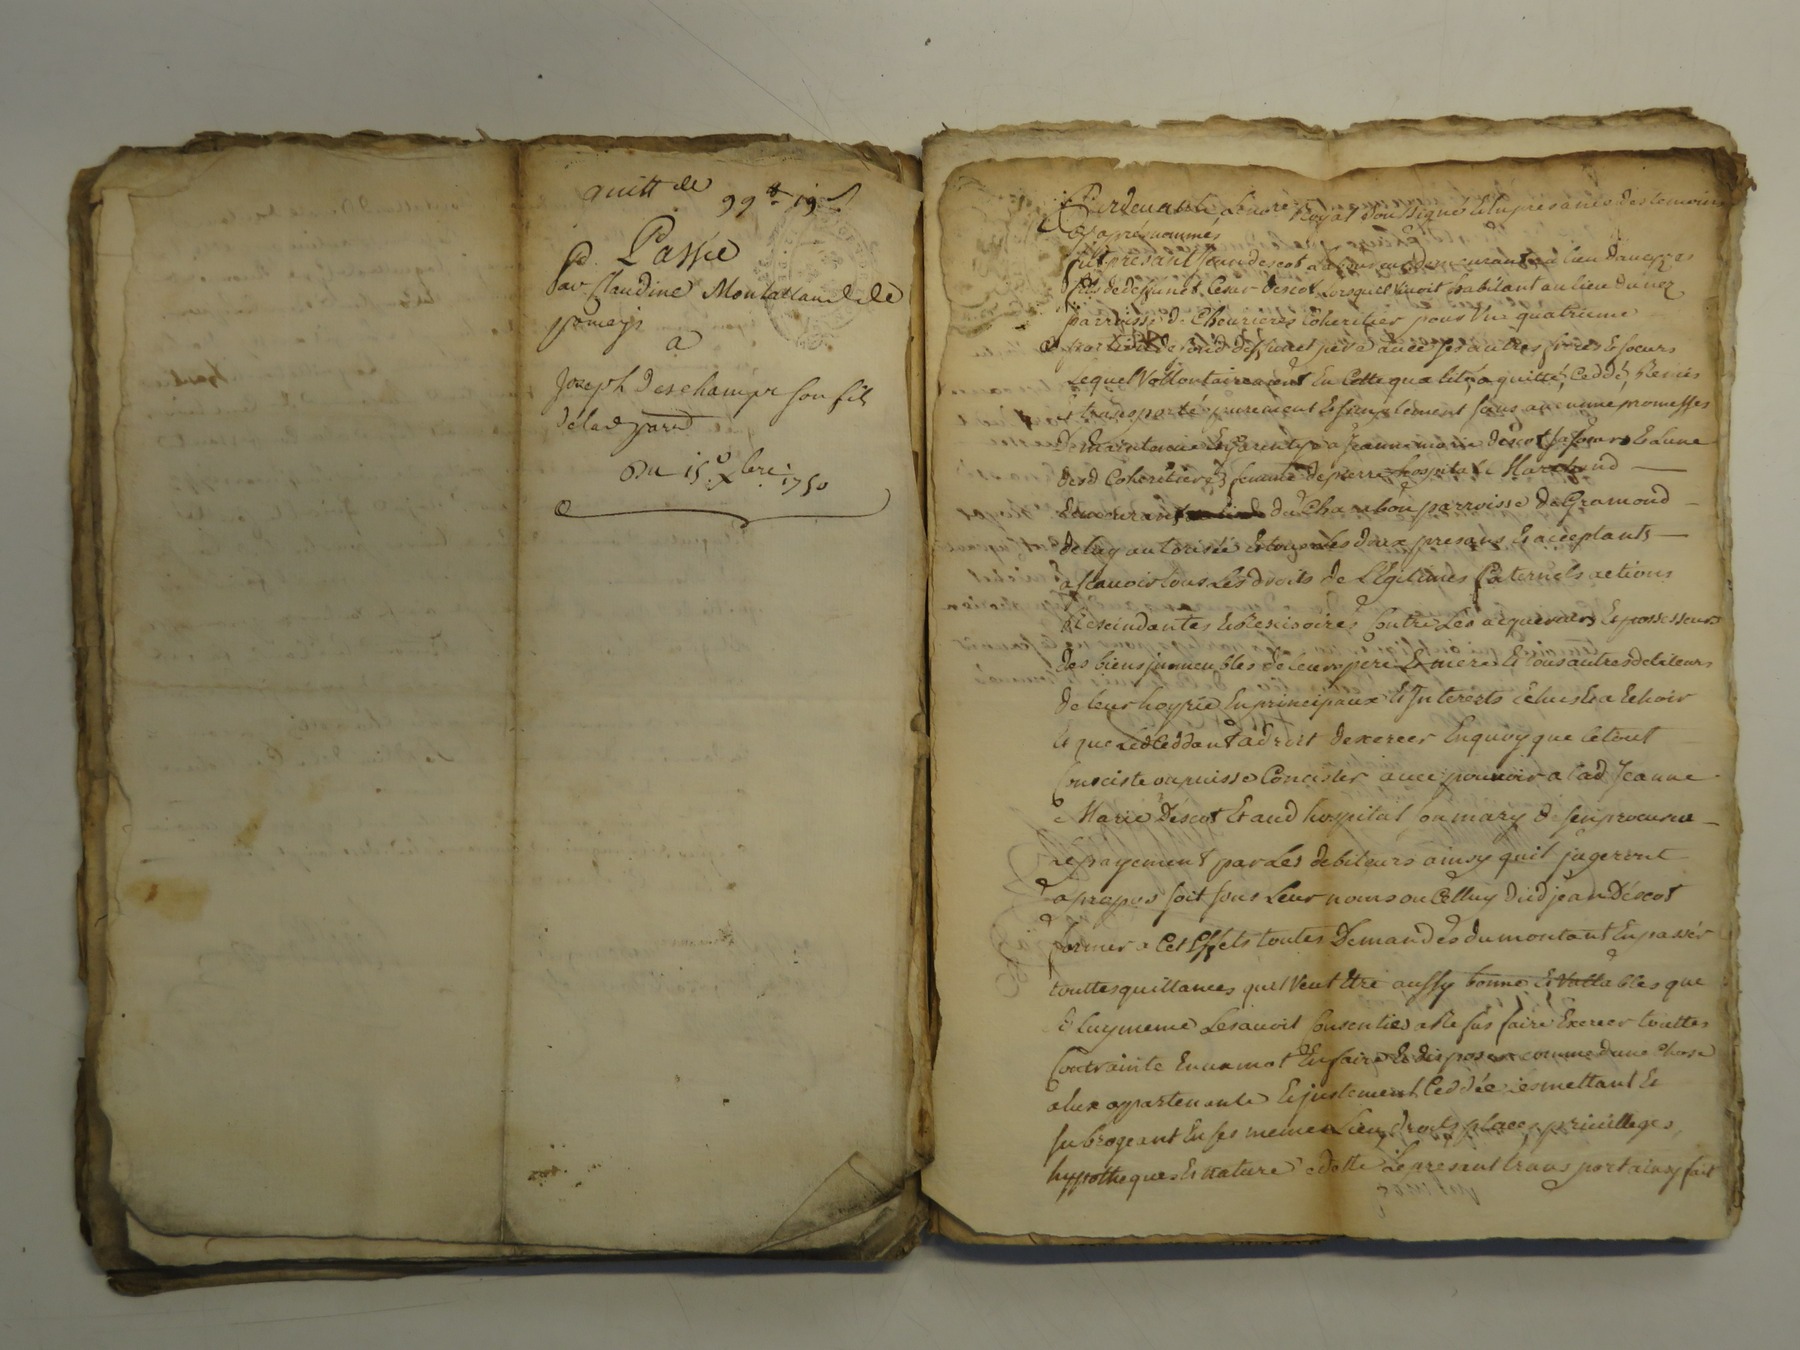 quitt de 99 ₶ 19 s
Passée
par Claudine Montailland de
pomeys
a
Joseph deschamps son fils
de lad parr
Du 15e Xbre 1750
Pardevant le no.re Royal Soussigné et en presance des temoins
cy apres nommés
fut presant Jean descot demeurant au lieu
fils de deffunct Cesar descot lorsquil vivoit habitant au lieu du
parroisse de Chevrieres Coheritier pour une quatrieme
partie de sond deffunct pere avec ses autres freres et soeurs
Lequel Vollontairement En Cette qualité a quitté, Ceddé, Remis
et transporté purement et simplement sans aucunne promesses
De maintenue ny garentye a Jeanne marie descot sa soeur et a lune
desd Coheritieres femme de pierre hospital Marchand
demeurant du Charabou parroisse de Gramond
de luy autorisée et tous les deux presans et acceptants
a scavoir tous Les droits de Légitimes Paternels actions
Rescindantes et Rescisoires Contre Les acquereurs et possesseurs
des biens jmmeubles de leur pere et mere et tous autres debiteurs
de leur hoyrie En principaux et Interests echus et a Echoir
et que Led Ceddant a droit dexercer En quoy que Cetout
Consciste ou puisse Concister avec pouvoir a lad Jeanne
Marie Descot et aud hospital son mary de sen procurer
Le payement par Les debiteurs ainsy quil jugeront
a propos soit sous Leur noms ou Celluy dud jean Descot
former a Cet Effets toutes Demandes du montant En passer
touttes quittances quil Veut Etre aussy bonne et Vallables que
sy Luy meme Les avoit Consenties a Refus faire Exercer touttes
Contrainte En un mot En faire et disposer comme dune chose
a Eux appartenante et justement Ceddée les mettant et
subrogeant En ses meme Lieu, droits places, privilleges,
hyppotheques et nature de dette le presant transport ainsy fait